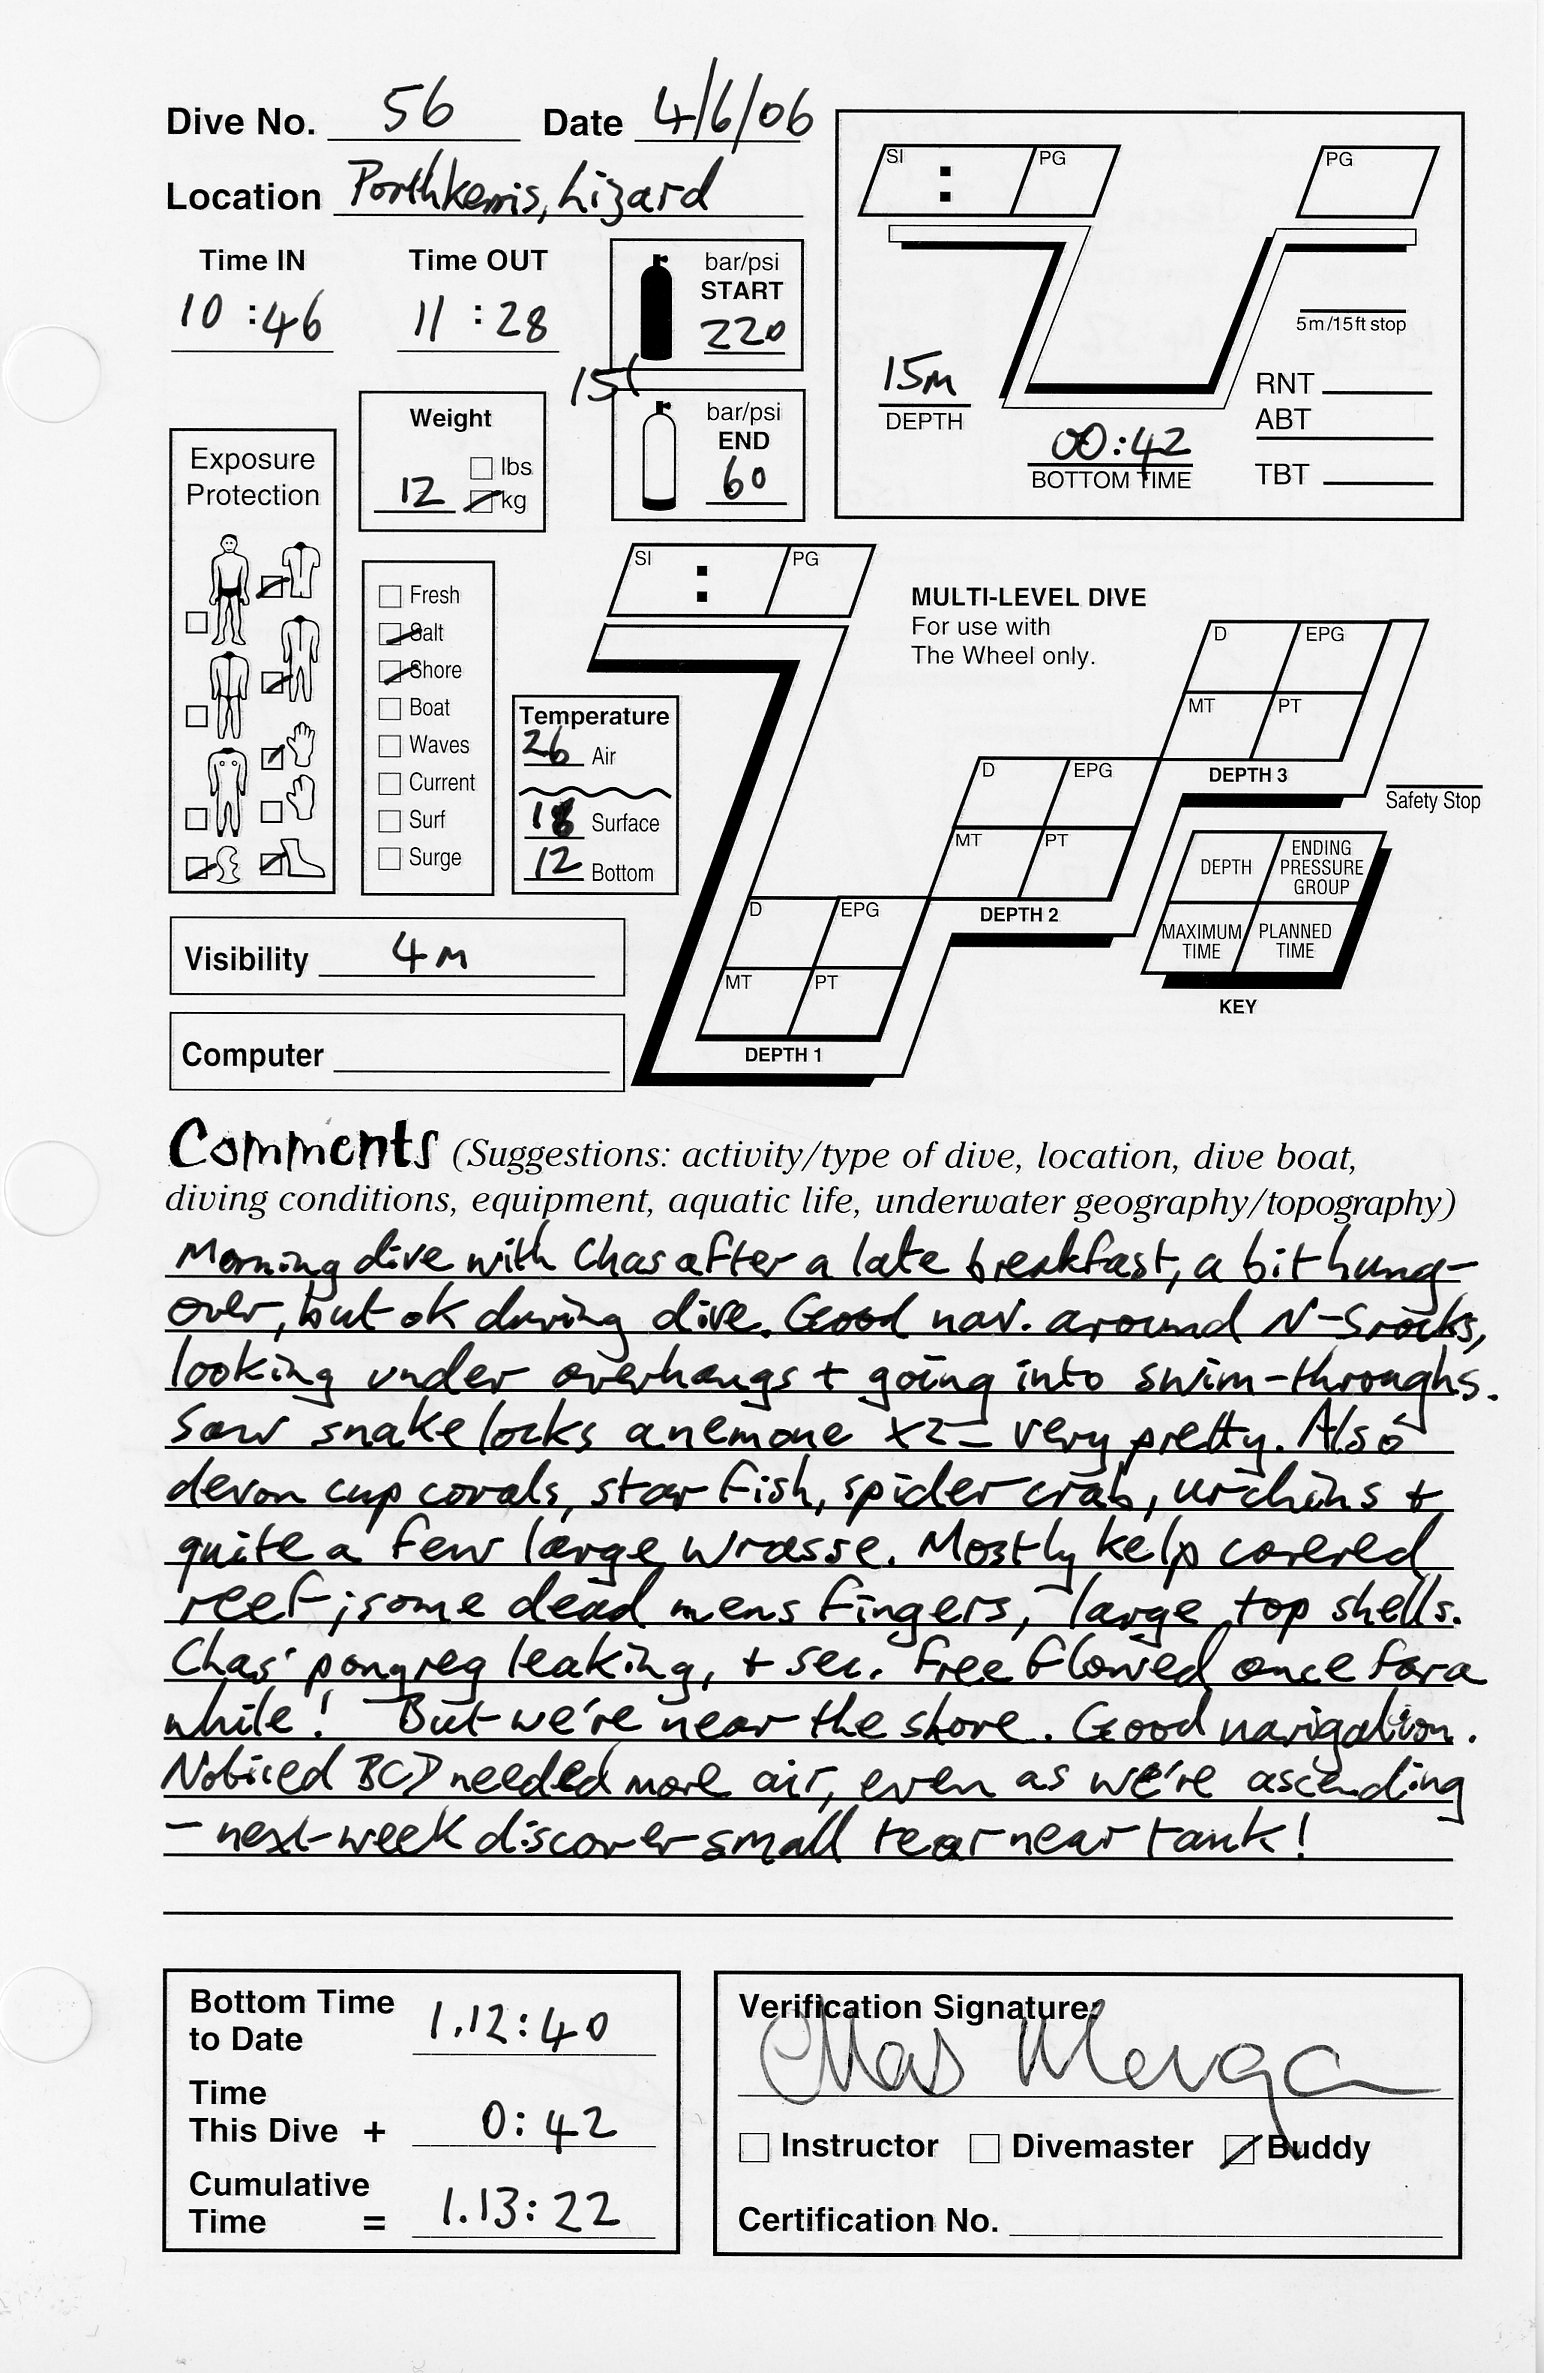 Dive No. 56 Date 4/6/06
Location Porthkerris, Lizard
Time IN Time OUT
10:46 11:28
bar/psi
START
220
15l
bar/psi
END
60
Weight
lbs
12 kg
Exposure
Protection
Fresh
Salt
Shore
Boat
Waves
Current
Surf
Surge
Temperature
26 Air
18 Surface
12 Bottom
Visibility 4m
Computer
SI : PG PG
5m/15ft stop
15m
DEPTH
00:42
BOTTOM TIME
RNT
ABT
TBT
SI : PG
MULTI-LEVEL DIVE
For use with
The Wheel only.
D EPG
MT PT
DEPTH 3
D EPG
MT PT
DEPTH 2
D EPG
MT PT
DEPTH 1
Safety Stop
DEPTH ENDING PRESSURE GROUP
MAXIMUM TIME PLANNED TIME
KEY
Comments (Suggestions: activity/type of dive, location, dive boat,
diving conditions, equipment, aquatic life, underwater geography/topography)
Morning dive with Chas after a late breakfast, a bit hung-
over, but ok during dive. Good nav. around N-S rocks,
looking under overhangs + going into swim-throughs.
Saw snakelocks anemone x2 - very pretty. Also
devon cup corals, star fish, spider crab, urchins +
quite a few large wrasse. Mostly kelp covered
reef; some dead mens fingers, large top shells.
Chas' pony reg leaking, + sec. free flowed once for a
while! But we're near the shore. Good navigation.
Noticed BCD needed more air, even as we're ascending
- next week discover small tear near tank!
Bottom Time
to Date 1.12:40
Time
This Dive + 0:42
Cumulative
Time = 1.13:22
Verification Signature:
Chas
Instructor Divemaster Buddy
Certification No.